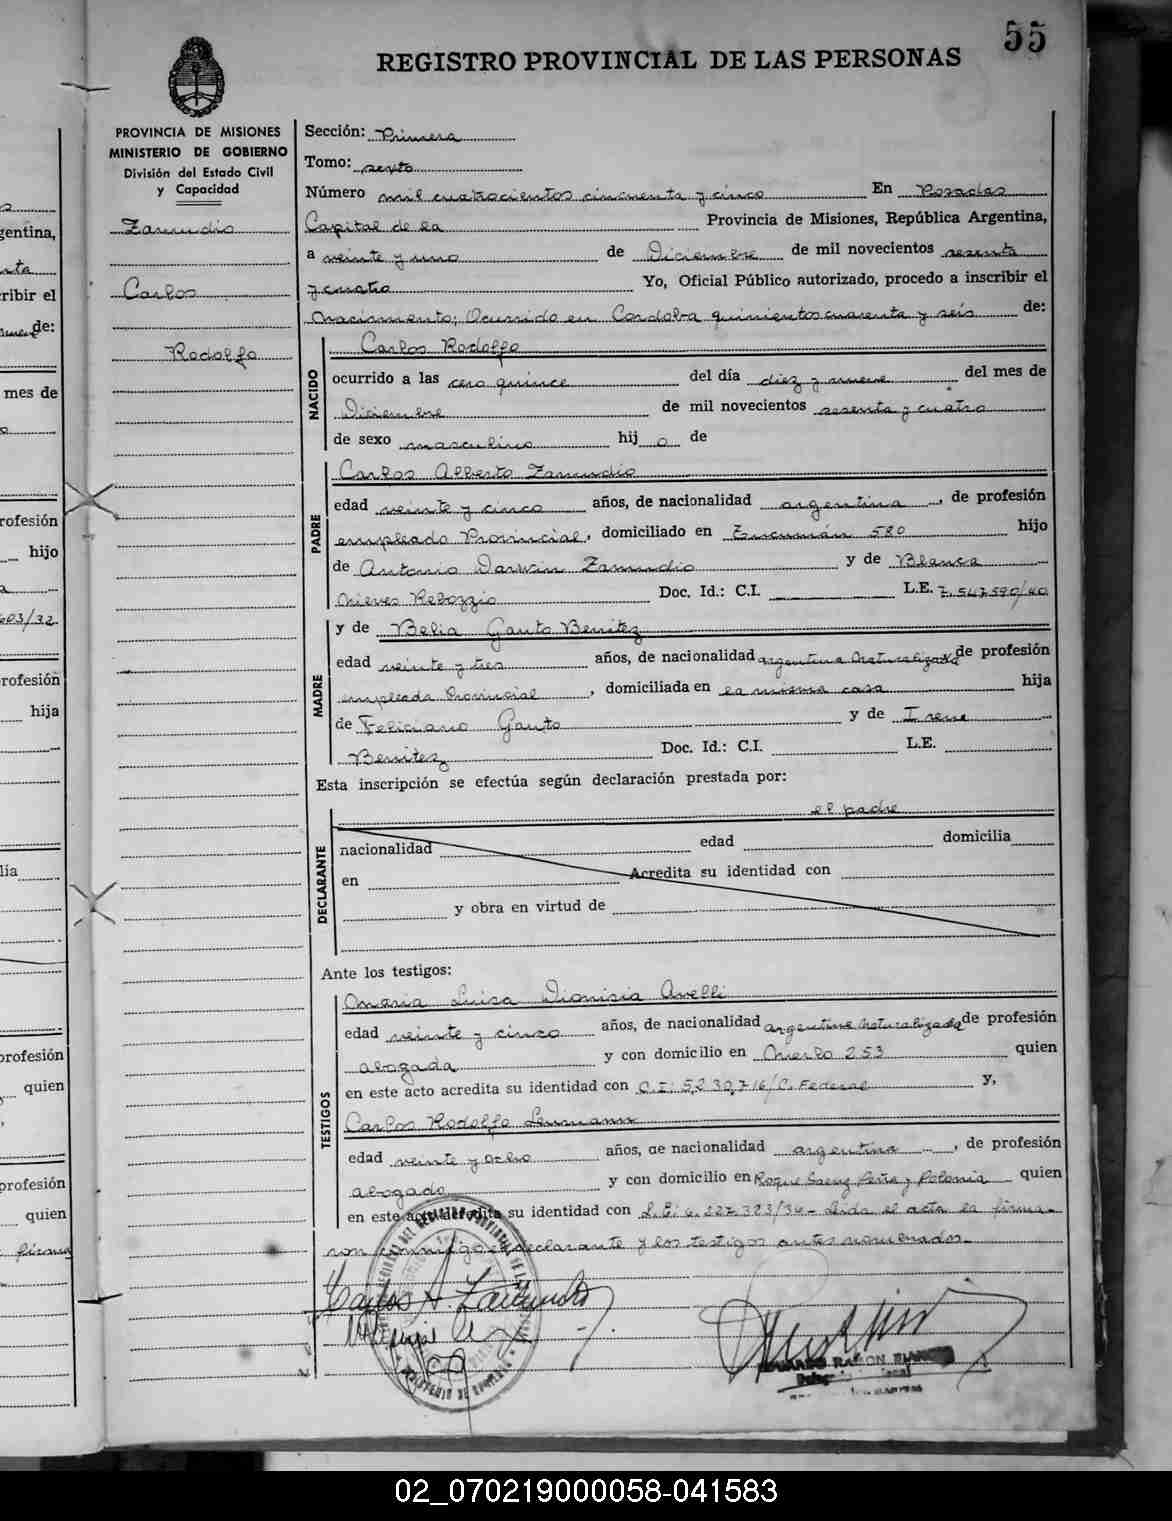 55
REGISTRO PROVINCIAL DE LAS PERSONAS
PROVINCIA DE MISIONES
MINISTERIO DE GOBIERNO
División del Estado Civil
y Capacidad
Zamudio
Carlos
Rodolfo
Sección: Primera
Tomo: sexto
Número mil cuatrocientos cincuenta y cinco En Posadas
Capital de la Provincia de Misiones, República Argentina,
a veinte y uno de Diciembre de mil novecientos sesenta
y cuatro Yo, Oficial Público autorizado, procedo a inscribir el
Nacimiento; Ocurrido en Cordoba quinientos cuarenta y seis de:
NACIDO
Carlos Rodolfo
ocurrido a las cero quince del día diez y nueve del mes de
Diciembre de mil novecientos sesenta y cuatro
de sexo masculino hij o de
PADRE
Carlos Alberto Zamudio
edad veinte y cinco años, de nacionalidad argentina, de profesión
empleado Provincial, domiciliado en Tucumán 580 hijo
de Antonio Darwin Zamudio y de Blanca
Nieves Rebozzio Doc. Id.: C.I. L.E. 7.547.590/40
MADRE
y de Belia Gauto Benitez
edad veinte y tres años, de nacionalidad argentina Naturalizada de profesión
empleada Provincial, domiciliada en la misma casa hija
de Feliciano Gauto y de Irene
Benitez Doc. Id.: C.I. L.E.
Esta inscripción se efectúa según declaración prestada por:
el padre
DECLARANTE
nacionalidad edad domicilia
en Acredita su identidad con
y obra en virtud de
Ante los testigos:
TESTIGOS
Maria Luisa Dionisia Avelli
edad veinte y cinco años, de nacionalidad argentina Naturalizada de profesión
abogada y con domicilio en Merlo 253 quien
en este acto acredita su identidad con C.I: 5,230,716/C. Federal y,
Carlos Rodolfo Lenmann
edad veinte y ocho años, de nacionalidad argentina, de profesión
abogado y con domicilio en Roque Saenz Peña y Polonia quien
en este acto acredita su identidad con L.E: 6.227.323/34- Leida el acta la firma-
ron conmigo el declarante y los testigos antes nombrados-
Carlos A. Zamudio
02_070219000058-041583